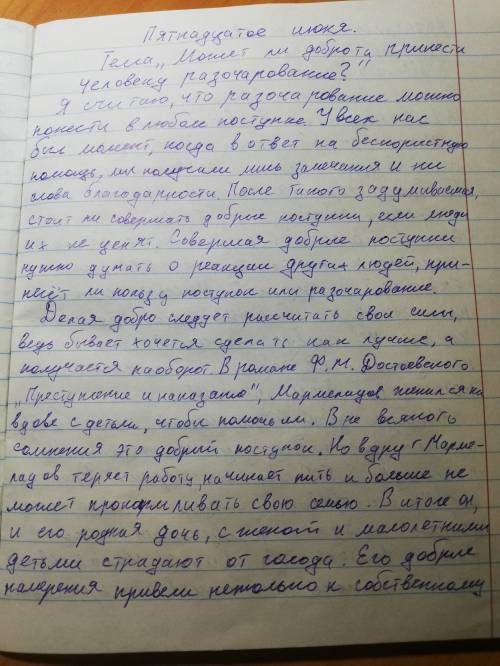 Пятнадцатое июня.
Тема „Может ли доброта принести
человеку разочарование?"
Я считаю, что разочарование можно
понести в любом поступке. У всех нас
был момент, когда в ответ на бескорыстную
помощь, мы получали лишь замечания и ни
слова благодарности. После такого задумываемся,
стоит ли совершать добрые поступки, если люди
их не ценят. Совершая добрые поступки
нужно думать о реакции других людей, при-
несёт ли пользу поступок или разочарование.
Делая добро следует рассчитать свои силы,
ведь бывает хочется сделать как лучше, а
получается наоборот. В романе Ф.М. Достоевского
„Преступление и наказание", Мармеладов женился на
вдове с детьми, чтобы помочь им. Вне всякого
сомнения это добрый поступок. Но вдруг Марме-
ладов теряет работу начинает пить и больше не
может прокормливать свою семью. В итоге он,
и его родная дочь, с женой и малолетними
детьми страдают от голода. Его добрые
намерения привели нетолько к собственному